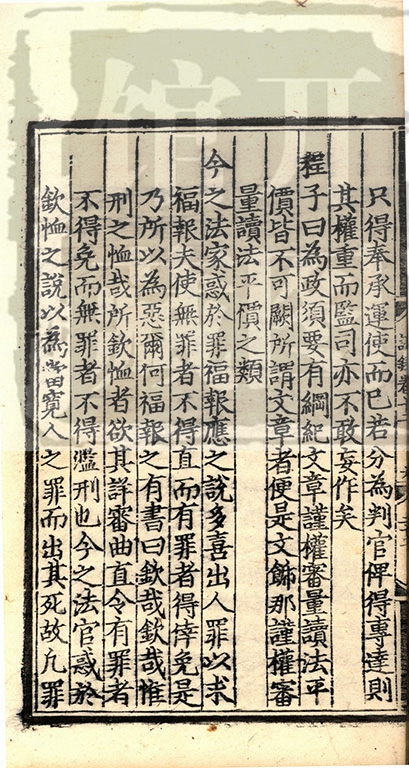 只得奉承運使而已若分為判官俾得專達則
其權重而監司亦不敢妄作矣
程子曰為政須要有綱紀文章謹權審量讀法平
價皆不可闕所謂文章者便是文飾那謹權審
量讀法平價之類
今之法家惑於罪福報應之說多喜出人罪以求
福報夫使無罪者不得直而有罪者得倖免是
乃所以為惡爾何福報之有書曰欽哉欽哉惟
刑之恤哉所欽恤者欲其詳審曲直令有罪者
不得免而無罪者不得濫刑也今之法官惑於
欽恤之說以為當寬人之罪而出其死故凡罪